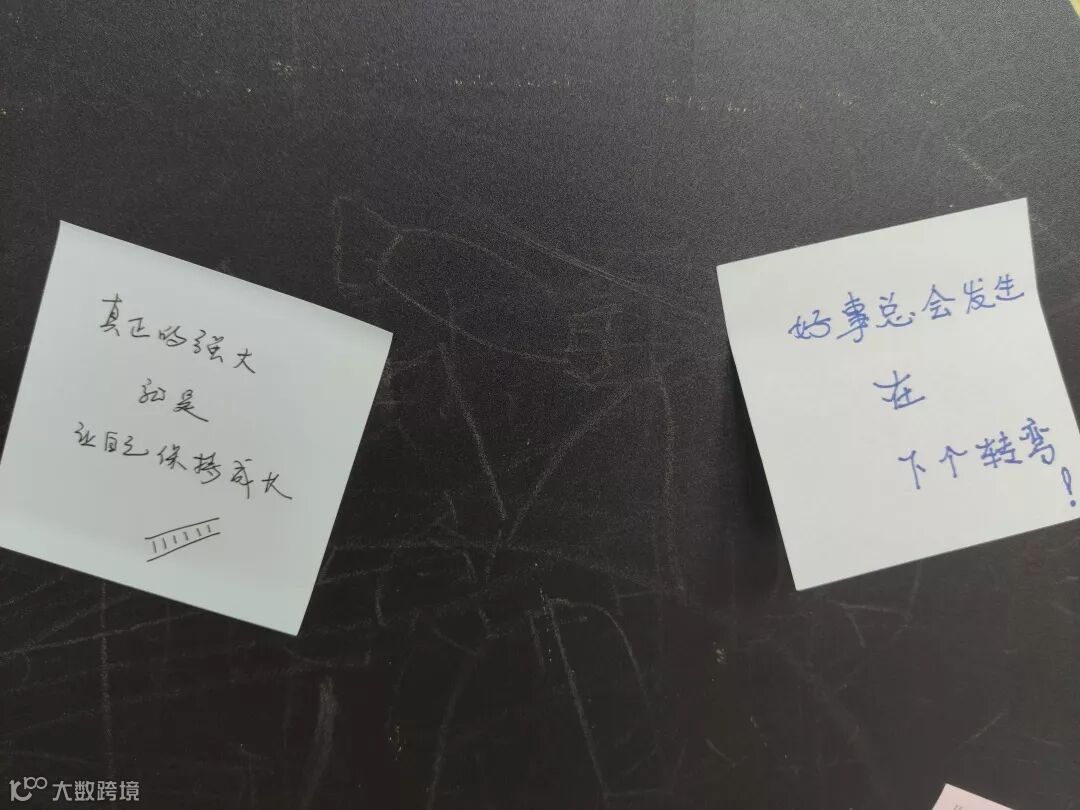 真正的强大
就是
让自己保持成长
好事总会发生
在
下个转弯!
大数跨境